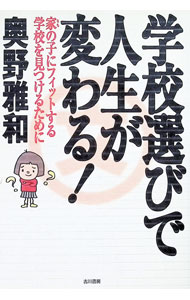 学校選びで
人生が
変わる!
家の子にフィットする
学校を見つけるために
奥野雅和
? ?
古川書房